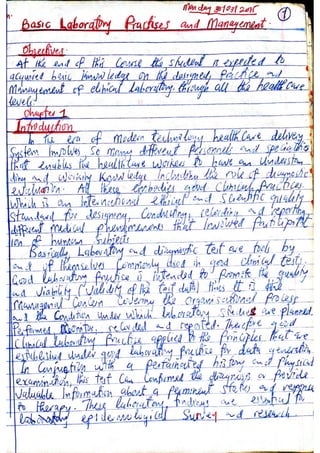 Monday
①
Basic Laboratory Practises and Management.
Objectives
At the end of this Course the student is expected to
acquired basic knowledge on the designed, practice and
Management of clinical Laboratory through all the health care
levels.
Chapter 1
Introduction
In the era of modern technology health Care delivery
System Involves so many different personnels and specialties
that enables the healthcare workers to have an understan
ding and working knowledge Including the role of diagnostic
evaluation. All these embodies good Clinical practices
Which is an International ethical and Scientific quality
Standard for designing, Conducting, recording and reporting
different medical phenomenons that Involved participat-
ion of human Subjects
Basically, Laboratory and diagnostic Test are tools by
and of themselves Commonly used in good clinical test.
Good laboratory practice is intended to promote the quality
and Viability (Validity of the test data) thus It is the
Managerial Concern Covering the Organisational process
and the Condition under which laboratory studies are planned
Performed Monitor, recorded and reported. Therefore good
Clinical Laboratory practice applied to the principles that are
established under good laboratory practice for data generation
In Conjuction with a pertainated history and physical
examination, this test Can Confirmed the diagnosis or provide
Valuable Information about a patient status and response
to therapy. These laboratory findings are essential for
epidemiological Survey and research.